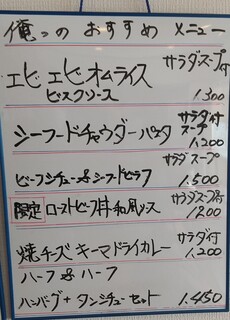 俺っのおすすめメニュー
エビエビオムライス サラダスープ付
ビスクソース 1.300
シーフードチャウダーパスタ サラダ付スープ
1,200
ビーフシチュー&シーフードピラフ サラダスープ
1.500
限定 ローストビーフ丼和風ソース サラダスープ付
1200
焼チーズキーマドライカレー サラダ付
1.200
ハーフ&ハーフ
ハンバーグ+タンシチューセット 1.450